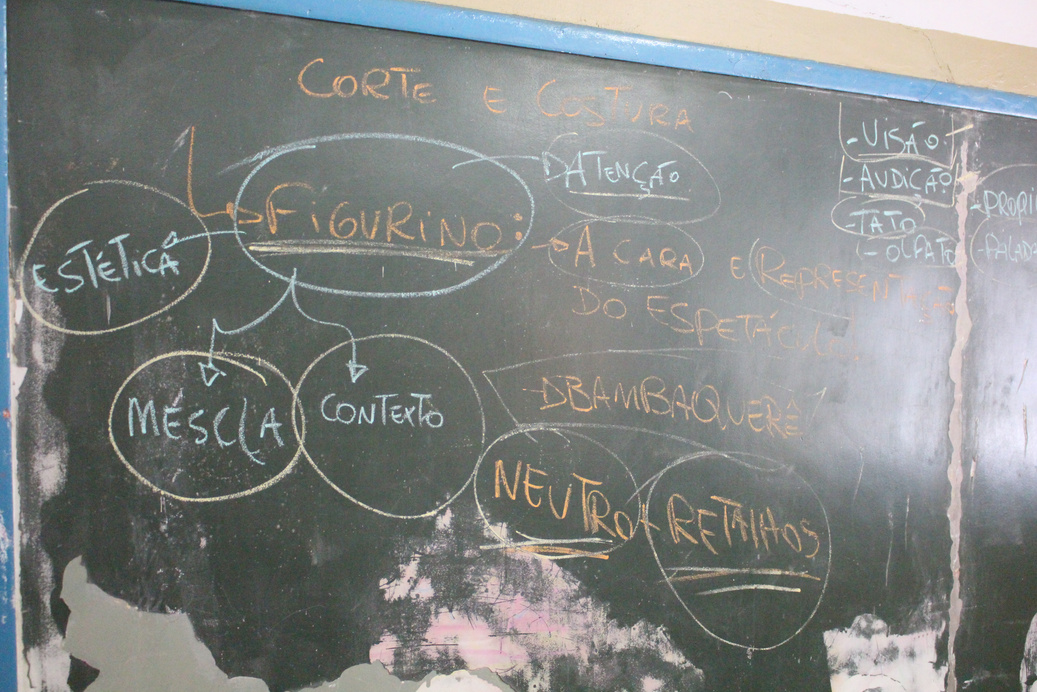 CORTE E COSTURA
FIGURINO:
ATENÇÃO
A CARA E REPRESENTAÇÃO
DO ESPETÁCULO
ESTÉTICA
MÉSCLA
CONTEXTO
BAMBAQUERÊ
NEUTRO + RETALHOS
-VISÃO
-AUDIÇÃO
-TATO
-OLFATO